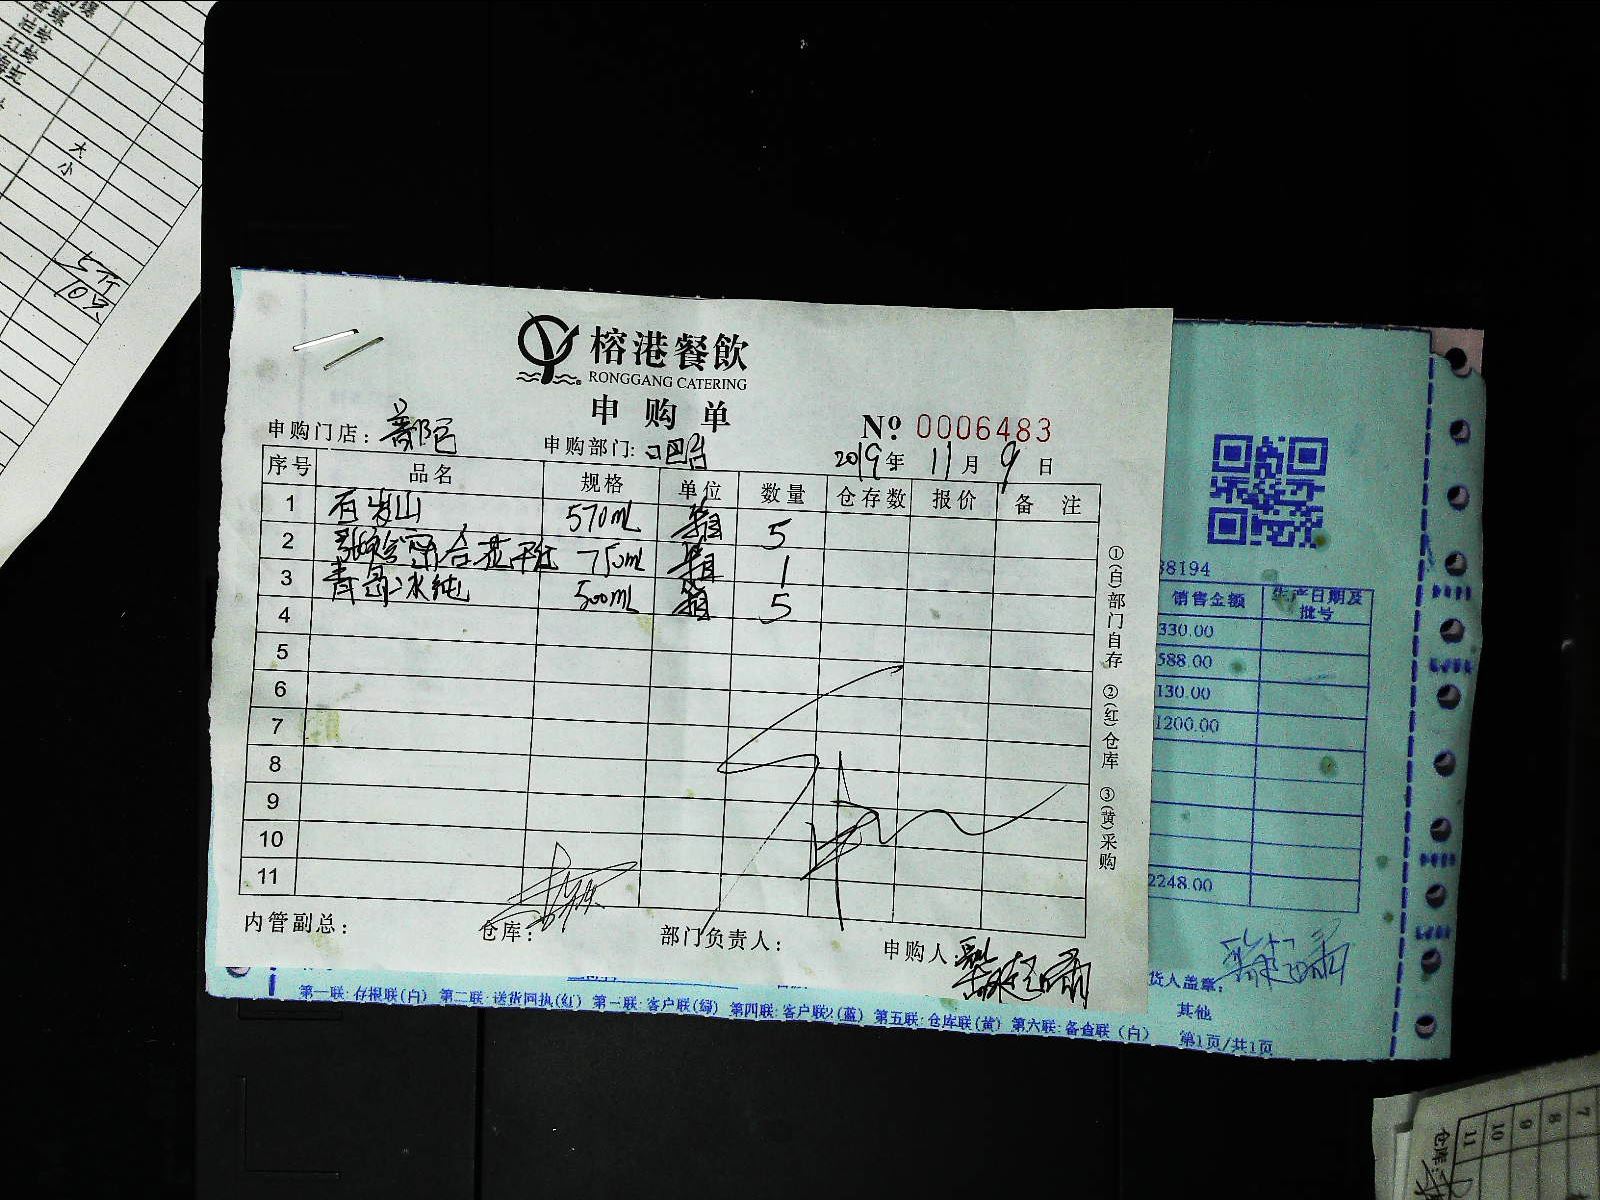 大
小
10只
榕港餐飲
RONGGANG CATERING
申购单
申购门店: 鄱邑
申购部门: 吧台
№ 0006483
2019年 11月 9日
序号 品名 规格 单位 数量 仓存数 报价 备注
1 570mL 箱 5
2 750mL 箱 1
3 青岛冰纯 500mL 箱 5
4
5
6
7
8
9
10
11
内管副总: 仓库: 部门负责人: 申购人:
①(白)部门自存 ②(红)仓库 ③(黄)采购
38194
销售金额 生产日期及批号
330.00
588.00
130.00
1200.00
2248.00
货人盖章:
其他
第1页/共1页
第一联:存根联(白) 第二联:送货回执(红) 第三联:客户联(绿) 第四联:客户联2(蓝) 第五联:仓库联(黄) 第六联:备查联(白)
7
8
9
10
11
仓库: